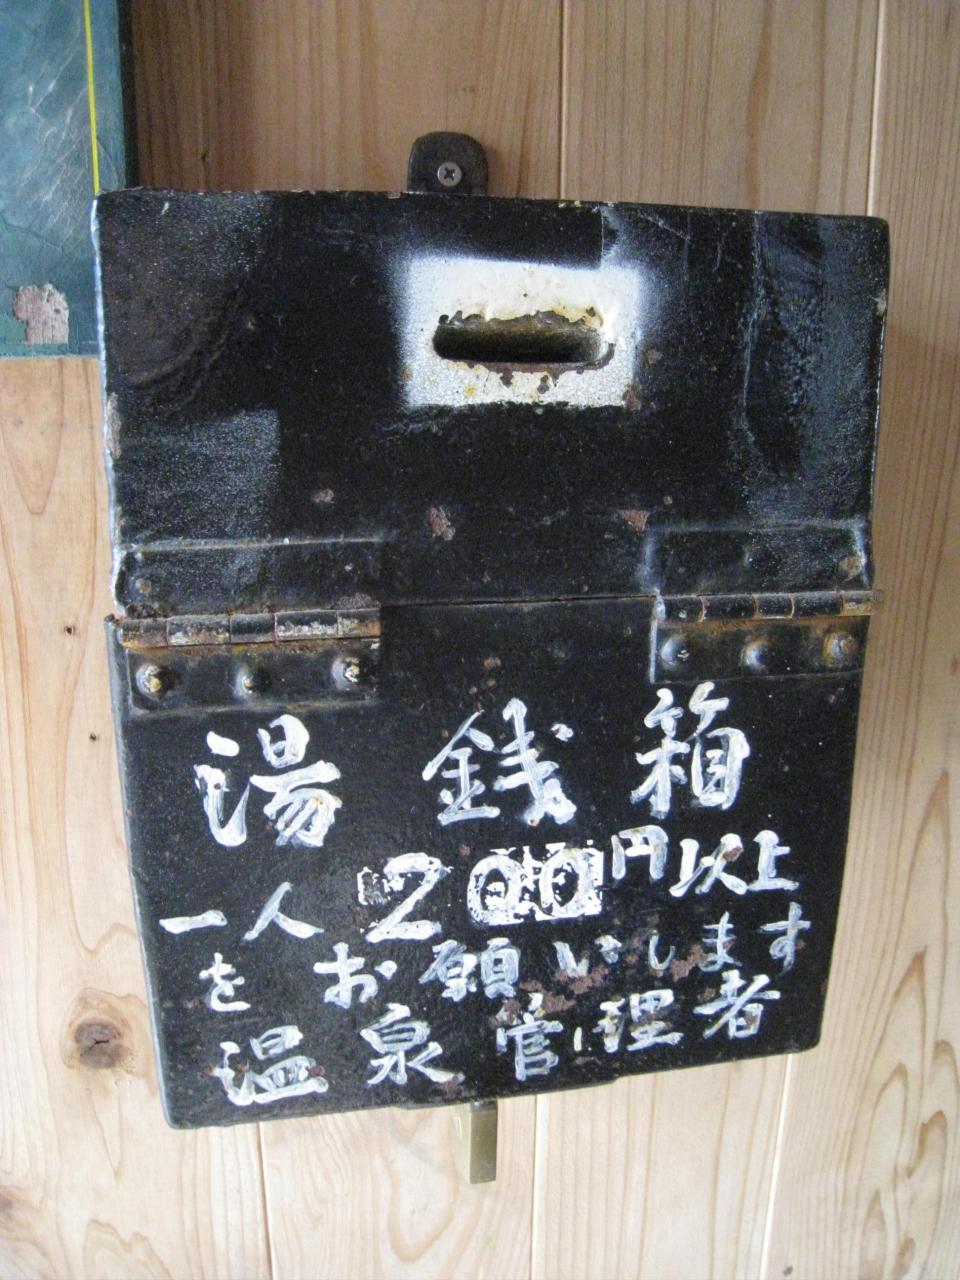 湯銭箱
一人200円以上
をお願いします
温泉管理者